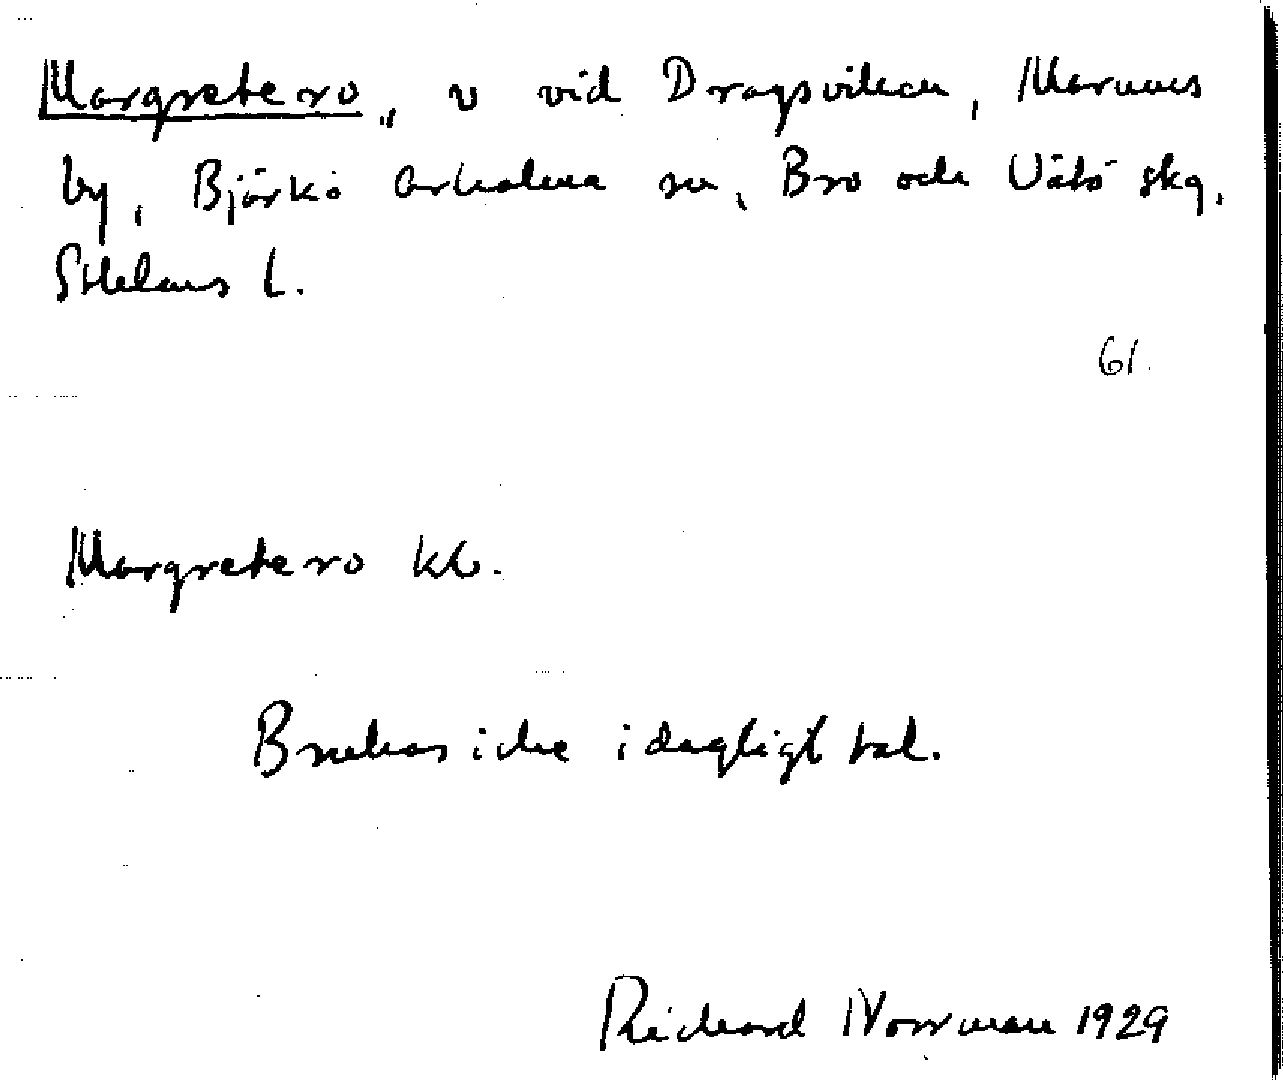 Margretero, v vid Dragsviken, Marums
by, Björkö Arholma sn, Bro och Vätö skg,
Sthlms l.
61.
Margretero kb.
Brukas icke i dagligt tal.
Richard Norrman 1929